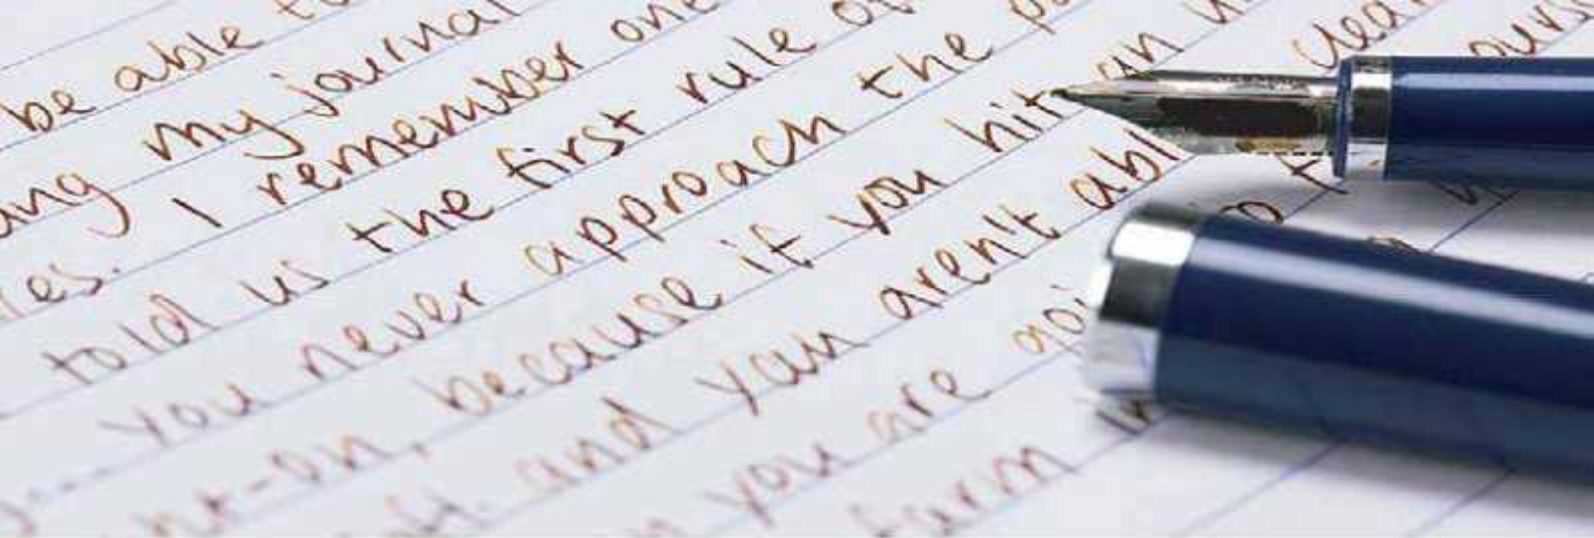 be able to
my journal
I remember one
told us the first rule of
you never approach the
because if you hit an
and you aren't
you are
farm in